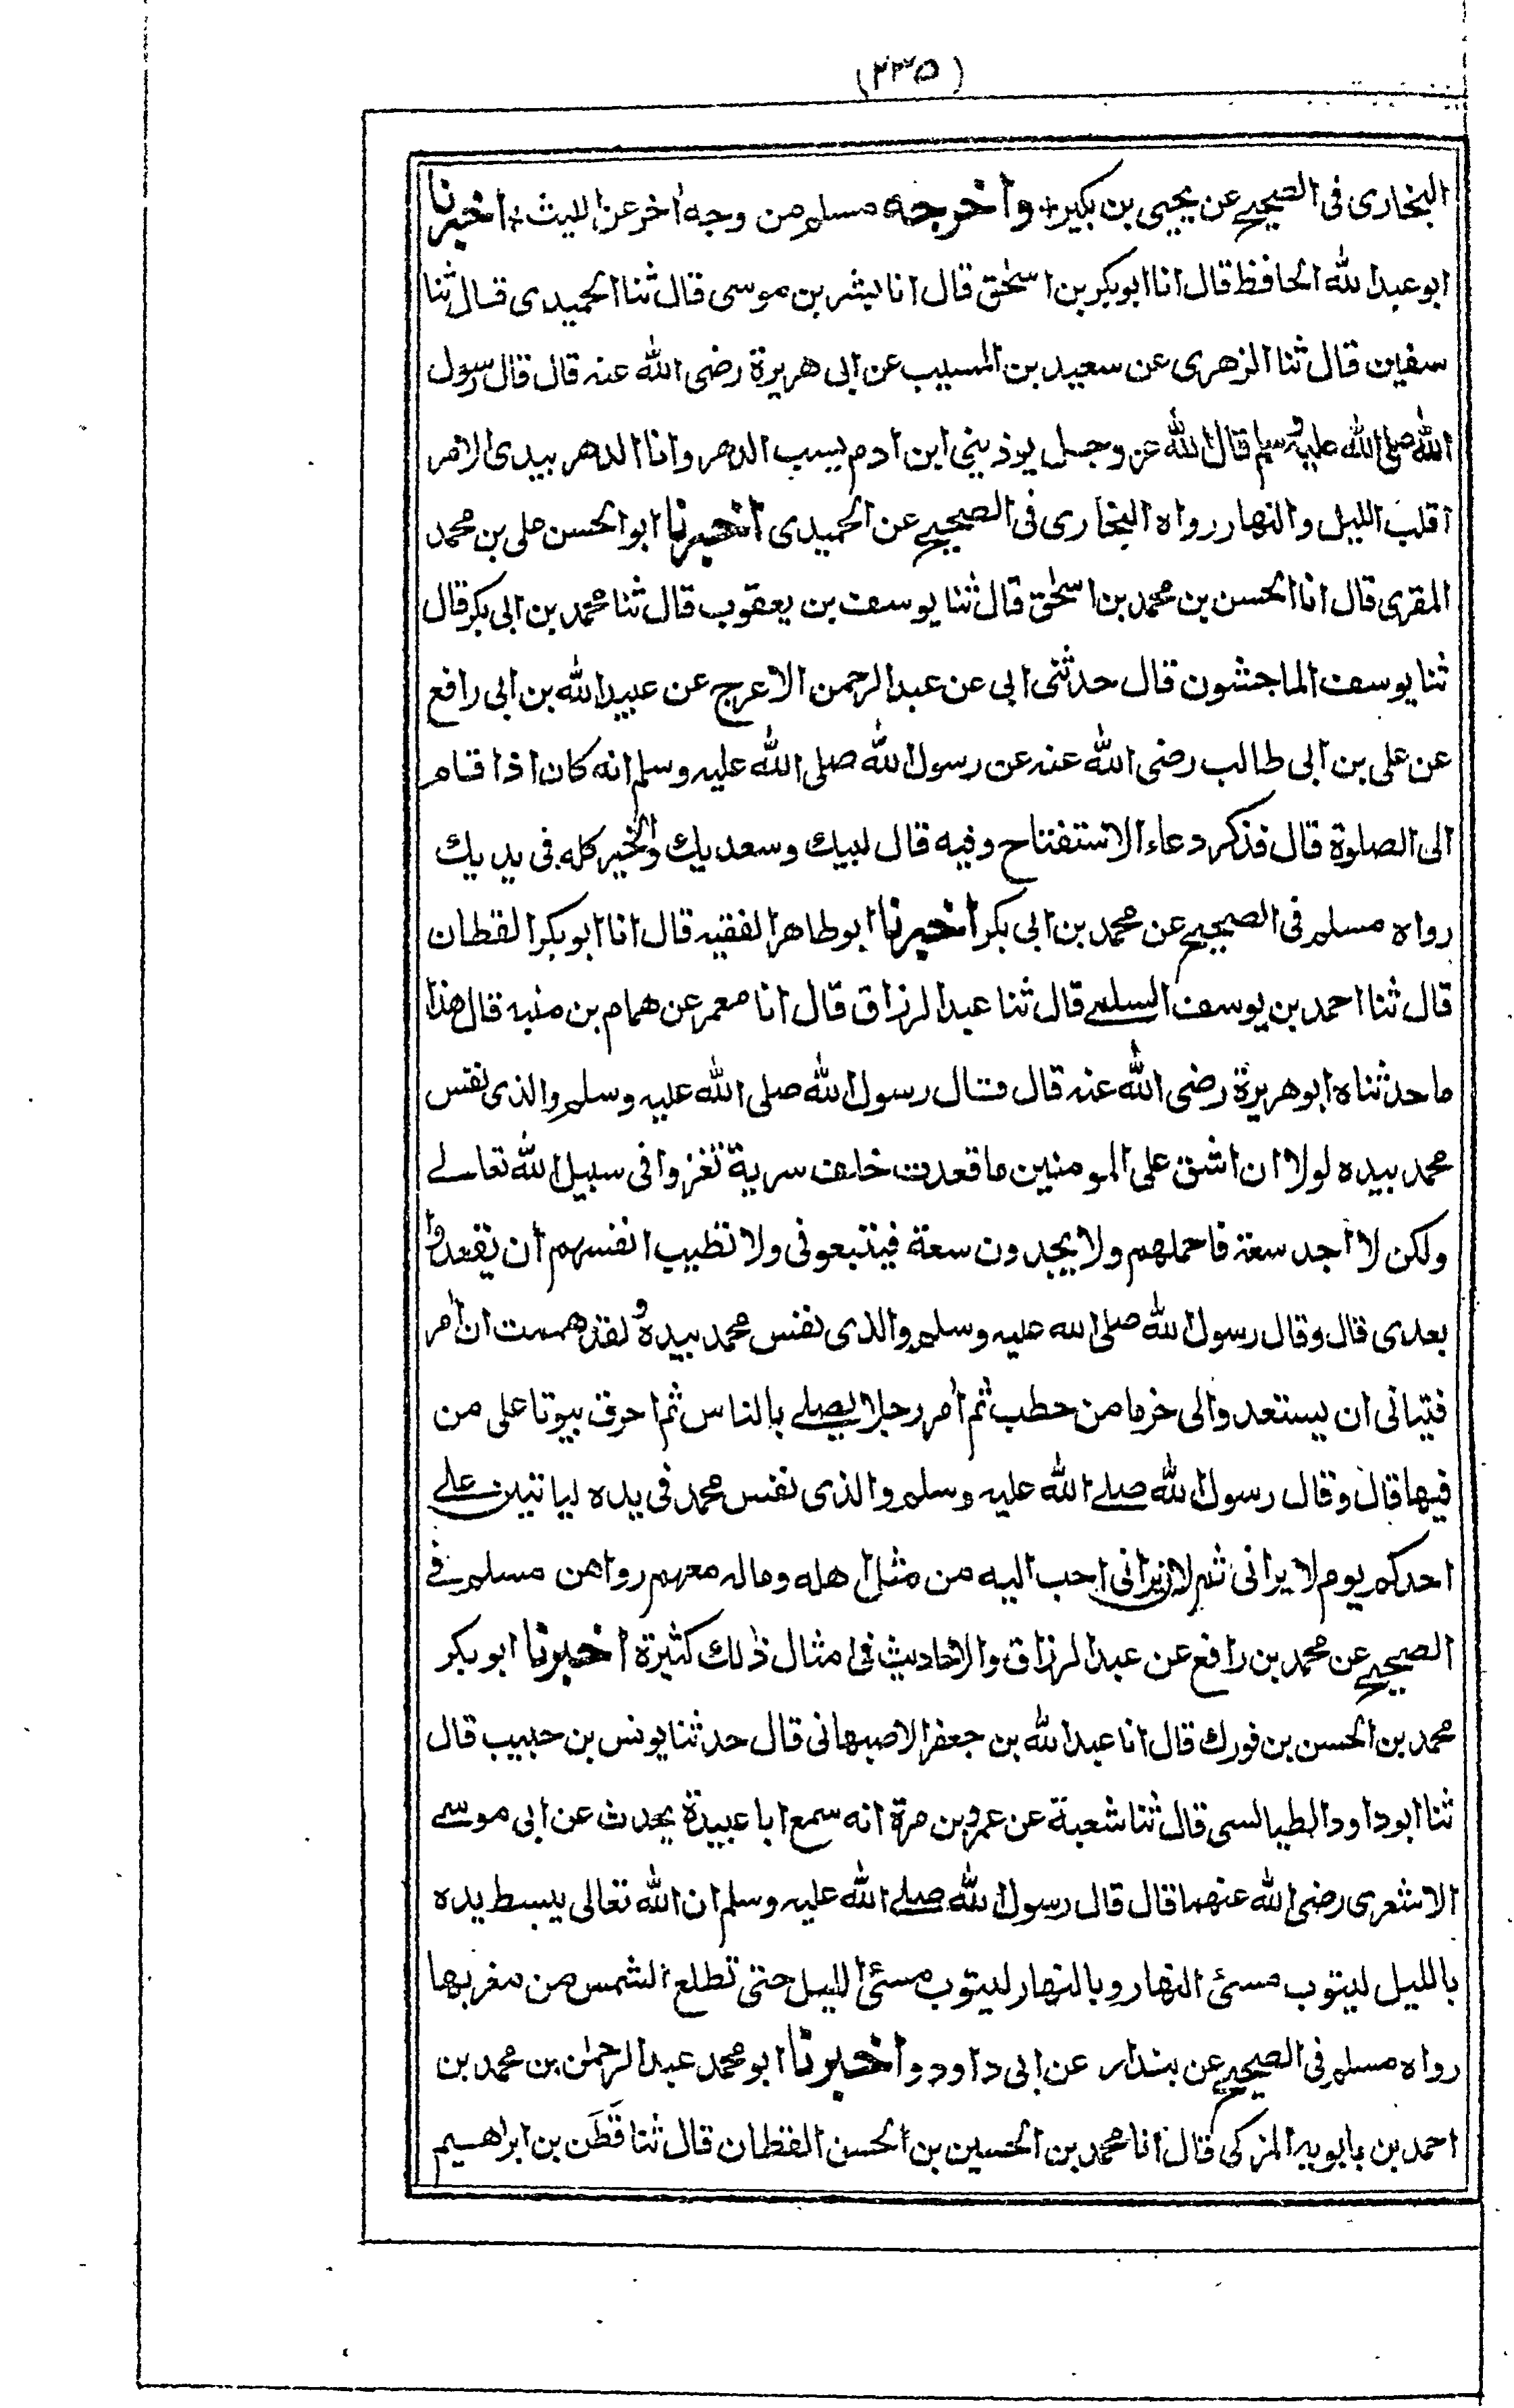 (٢٣٥)
البخارى فى الصحيح عن يحيى بن بكير+ وأخرجه مسلم من وجه أخر عن الليث+ اخبرنا
ابو عبد الله الحافظ قال انا ابو بكر بن اسحٰق قال انا بشر بن موسى قال ثنا الحميدى قال ثنا
سفين قال ثنا الزهرى عن سعيد بن المسيب عن ابى هريرة رضى الله عنه قال قال رسول
الله صلى الله عليه وسلم قال الله عز وجل يوذينى ابن ادم يسب الدهر وانا الدهر بيدى الامر
اقلب الليل والنهار رواه البخارى فى الصحيح عن الحميدى اخبرنا ابو الحسن على بن محمد
المقرى قال انا الحسن بن محمد بن اسحٰق قال ثنا يوسف بن يعقوب قال ثنا محمد بن ابى بكر قال
ثنا يوسف الماجشون قال حدثنى ابى عن عبد الرحمن الاعرج عن عبيد الله بن ابى رافع
عن على بن ابى طالب رضى الله عنه عن رسول الله صلى الله عليه وسلم انه كان اذا قام
الى الصلوة قال فذكر دعاء الاستفتاح وفيه قال لبيك وسعديك والخير كله فى يديك
رواه مسلم فى الصحيح عن محمد بن ابى بكر اخبرنا ابو طاهر الفقيه قال انا ابو بكر القطان
قال ثنا احمد بن يوسف السلمے قال ثنا عبد الرزاق قال انا معمر عن همام بن منبه قال هذا
ما حدثناه ابو هريرة رضى الله عنه قال قال رسول الله صلى الله عليه وسلم والذى نفس
محمد بيده لولا ان اشق على المومنين ما قعدت خلف سرية تغزوا فى سبيل الله تعالے
ولكن لا أجد سعة فاحملهم ولا يجدون سعة فيتبعونى ولا تطيب انفسهم ان يقعدوا
بعدى قال وقال رسول الله صلى الله عليه وسلم والذى نفس محمد بيده لقد هممت ان أمر
فتيانى ان يستعدوا لى حزما من حطب ثم أمر رجلا يصلے بالناس ثم احرق بيوتا على من
فيها قال وقال رسول الله صلے الله عليه وسلم والذى نفس محمد فى يده لياتين علے
احدكم يوم لا يرانى ثم لان يرانى احب اليه من مثل اهله وماله معهم رواهن مسلم فے
الصحيح عن محمد بن رافع عن عبد الرزاق والاحاديث فى امثال ذٰلك كثيرة اخبرنا ابو بكر
محمد بن الحسن بن فورك قال انا عبد الله بن جعفر الاصبهانى قال حدثنا يونس بن حبيب قال
ثنا ابو داود الطيالسى قال ثنا شعبة عن عمرو بن مرة انه سمع ابا عبيدة يحدث عن ابى موسے
الاشعرى رضى الله عنهما قال قال رسول الله صلے الله عليه وسلم ان الله تعالى يبسط يده
بالليل ليتوب مسئ النهار وبالنهار ليتوب مسئ الليل حتى تطلع الشمس من مغربها
رواه مسلم فى الصحيح عن بندار عن ابى داود واخبرنا ابو محمد عبد الرحمٰن بن محمد بن
احمد بن بابويه المزكى قال انا محمد بن الحسين بن الحسن القطان قال ثنا قَطَن بن ابراهيم